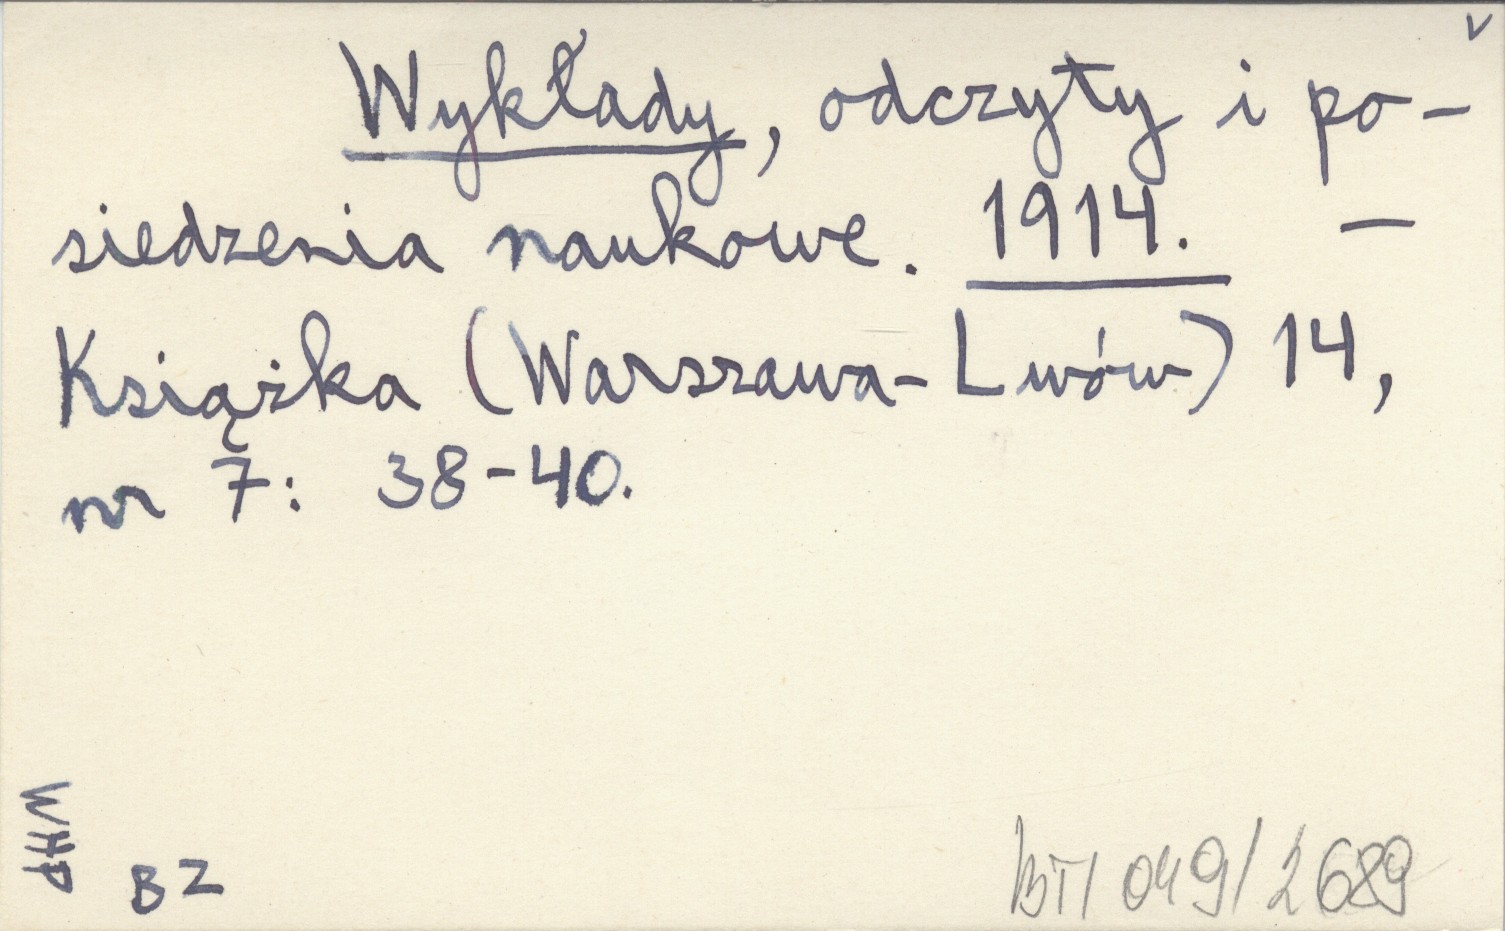 v
Wykłady, odczyty i po-
siedzenia naukowe. 1914. –
Książka (Warszawa-Lwów) 14,
nr 7: 38-40.
WHP
BZ
BT/049/2689